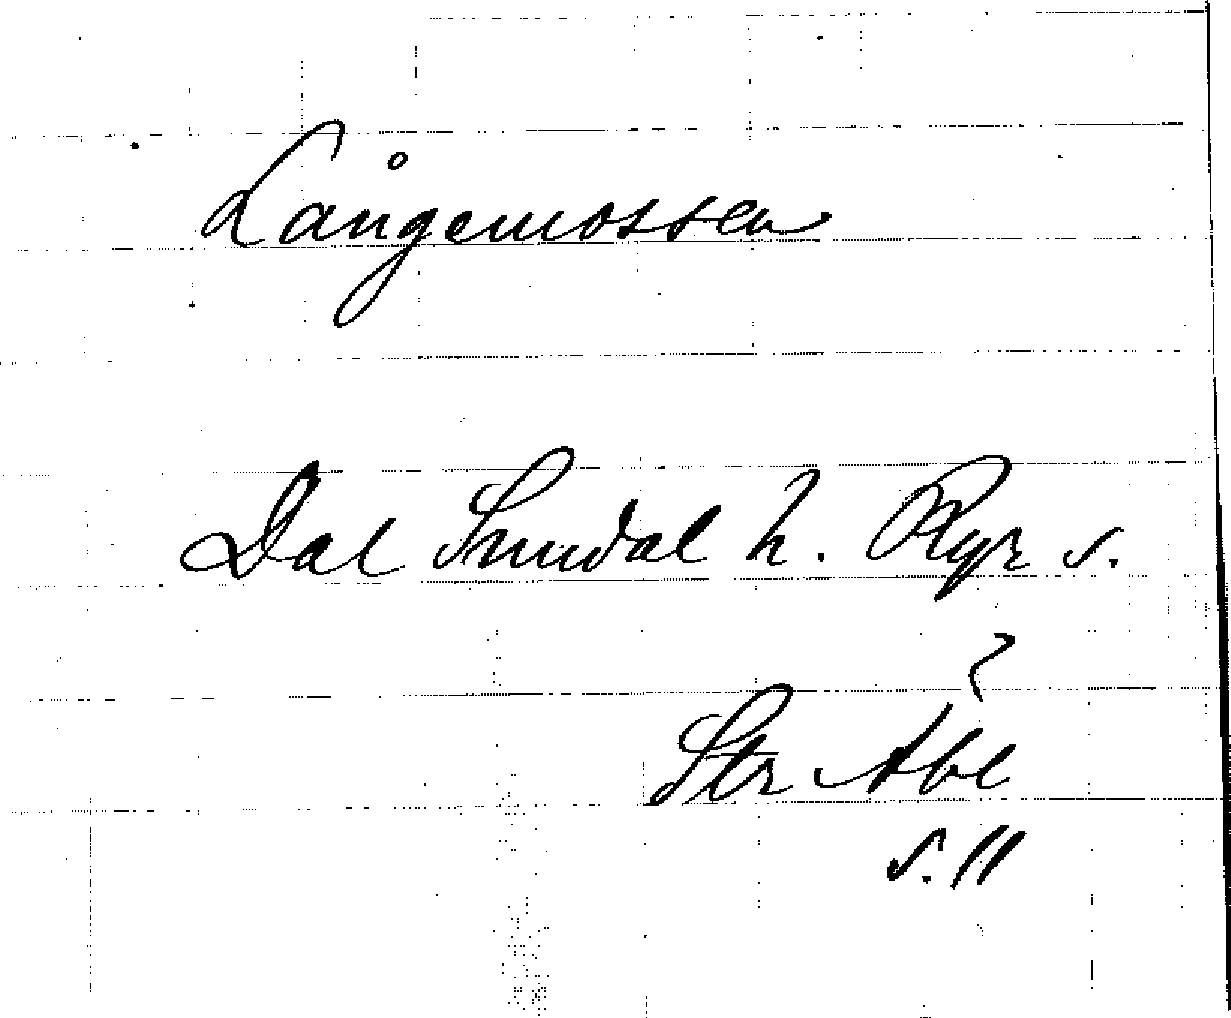 Långemossen
Dal Sundal h. Ryr s.
?
Str Abl
s. 11